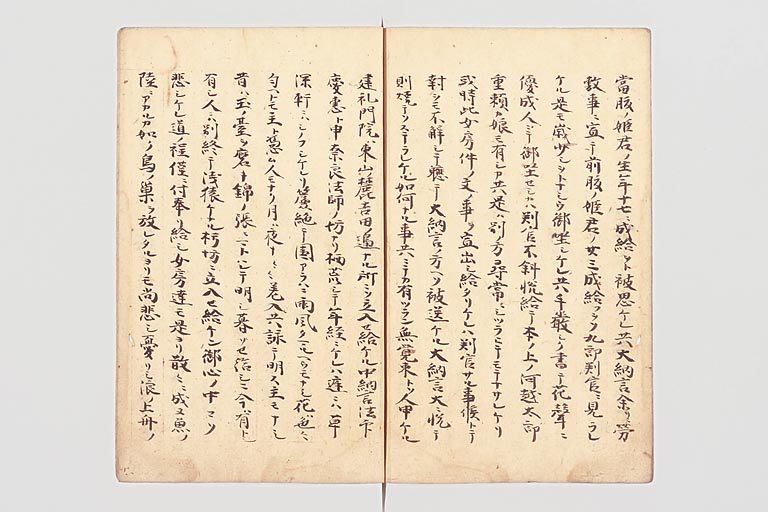 當腹ノ姫君ノ生年十七ニ成給ヲト被思ケレ共大納言余リ労
敷事ニ宣テ前腹ノ姫君ノ廿三ニ成給フヲソ九郎判官ニ見ラレ
ケル是モ歳少シヲトナシクソ御坐ケレ共手厳シク書テ花聲ニ
優成人ニテ御坐セシカハ判官不斜悦給テ本ノ上ノ河越太郎
重頼カ娘モ有シカ共是ハ別ノ方尋常ニシツラヒテモテナサレケリ
或時此女房件ノ文ノ事ヲ宣出シ給タリケレハ判官サル事候トテ
封ヲモ不解シテ軈テ大納言ノ方ヘソ被送ケル大納言大ニ悦テ
則焼テソステラレケル如何ナル事共ニテカ有ツラン無覚束ト人申ケル
建礼門院ハ東山麓吉田ノ邊ナル所ニソ立入セ給ケル中納言法印
慶恵ト申奈良法師ノ坊ナリ栖荒シテ年経ニケレハ庭ニハ草
深ク軒ニハシノフシケレリ簾絶テ閨アラハニ雨風タマルヘウモナシ花ハ色々
匂ヘトモ主ト憑ム人モナク月ハ夜ナ々々差入共詠テ明ス主モナシ
昔ハ玉ノ臺ヲ磨キ錦ノ張ニマトハレテ明シ暮ツセ給シニ今ハ有トシ
有シ人ニハ別終テ浅猨ケナル朽坊ニ立入セ給ケン御心ノ中
悲シケレ道ノ程ニ付奉リ給シ女房達モ是ヨリ散々ニ成又魚ノ
陸ニアカルカ如ク鳥ノ巣ヲ放レタルヨリモ尚悲シ憂リシ浪ノ上舟ノ